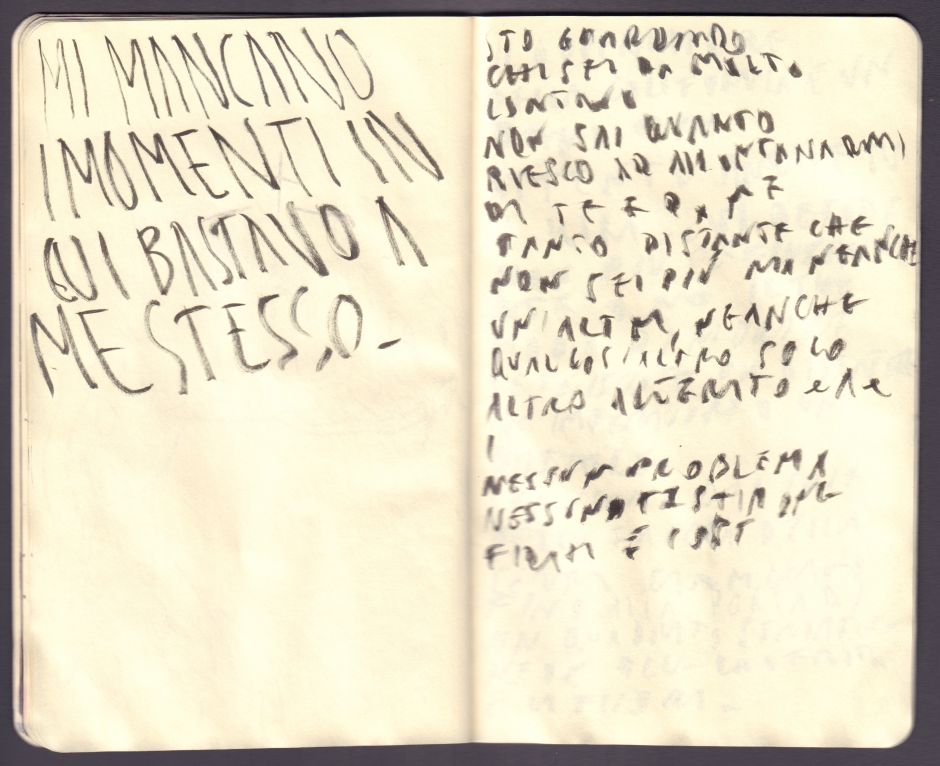 MI MANCANO
I MOMENTI IN
CUI BASTAVO A
ME STESSO.
STO GUARDANDO
CHI SEI DA MOLTO
LONTANO
NON SAI QUANTO
RIESCO AD ALLONTANARMI
DA TE E DA ME
TANTO DISTANTE CHE
NON SEI PIÙ MA NEANCHE
UN'ALTRA, NEANCHE
QUALCOS'ALTRO SOLO
ALTRO
I
NESSUN PROBLEMA
NESSUNA
È COSÌ